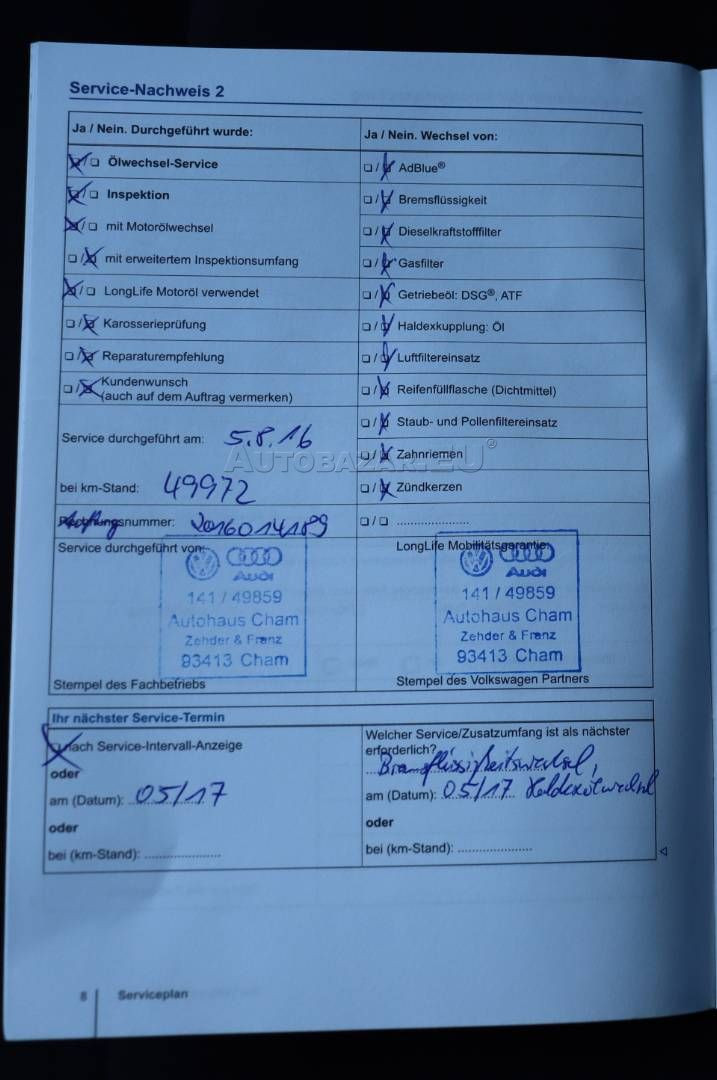 Service-Nachweis 2
Ja / Nein. Durchgeführt wurde:
☒/☐ Ölwechsel-Service
☒/☐ Inspektion
☒/☐ mit Motorölwechsel
☐/☒ mit erweitertem Inspektionsumfang
☒/☐ LongLife Motoröl verwendet
☐/☒ Karosserieprüfung
☐/☒ Reparaturempfehlung
☐/☒ Kundenwunsch
(auch auf dem Auftrag vermerken)
Service durchgeführt am: 5.8.16
bei km-Stand: 49972
Auftragsnummer: 2016014189
Service durchgeführt von:
Audi
141 / 49859
Autohaus Cham
Zehder & Franz
93413 Cham
Stempel des Fachbetriebs
Ja / Nein. Wechsel von:
☐/☒ AdBlue®
☐/☒ Bremsflüssigkeit
☐/☒ Dieselkraftstofffilter
☐/☒ Gasfilter
☐/☒ Getriebeöl: DSG®, ATF
☐/☒ Haldexkupplung: Öl
☐/☒ Luftfiltereinsatz
☐/☒ Reifenfüllflasche (Dichtmittel)
☐/☒ Staub- und Pollenfiltereinsatz
☐/☒ Zahnriemen
☐/☒ Zündkerzen
☐/☐ ......................
LongLife Mobilitätsgarantie:
Audi
141 / 49859
Autohaus Cham
Zehder & Franz
93413 Cham
Stempel des Volkswagen Partners
AUTOBAZAR.EU®
Ihr nächster Service-Termin
☒ nach Service-Intervall-Anzeige
oder
am (Datum): 05/17
oder
bei (km-Stand): ......................
Welcher Service/Zusatzumfang ist als nächster
erforderlich?
Bremsflüssigkeitswechsel,
am (Datum): 05/17 Haldexölwechsel
oder
bei (km-Stand): ......................
8 Serviceplan